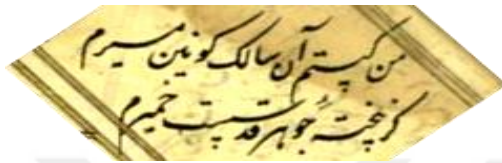 من کیستم آن سالک کونین مسیرم
کز پخته جوهر قدسیست خمیرم